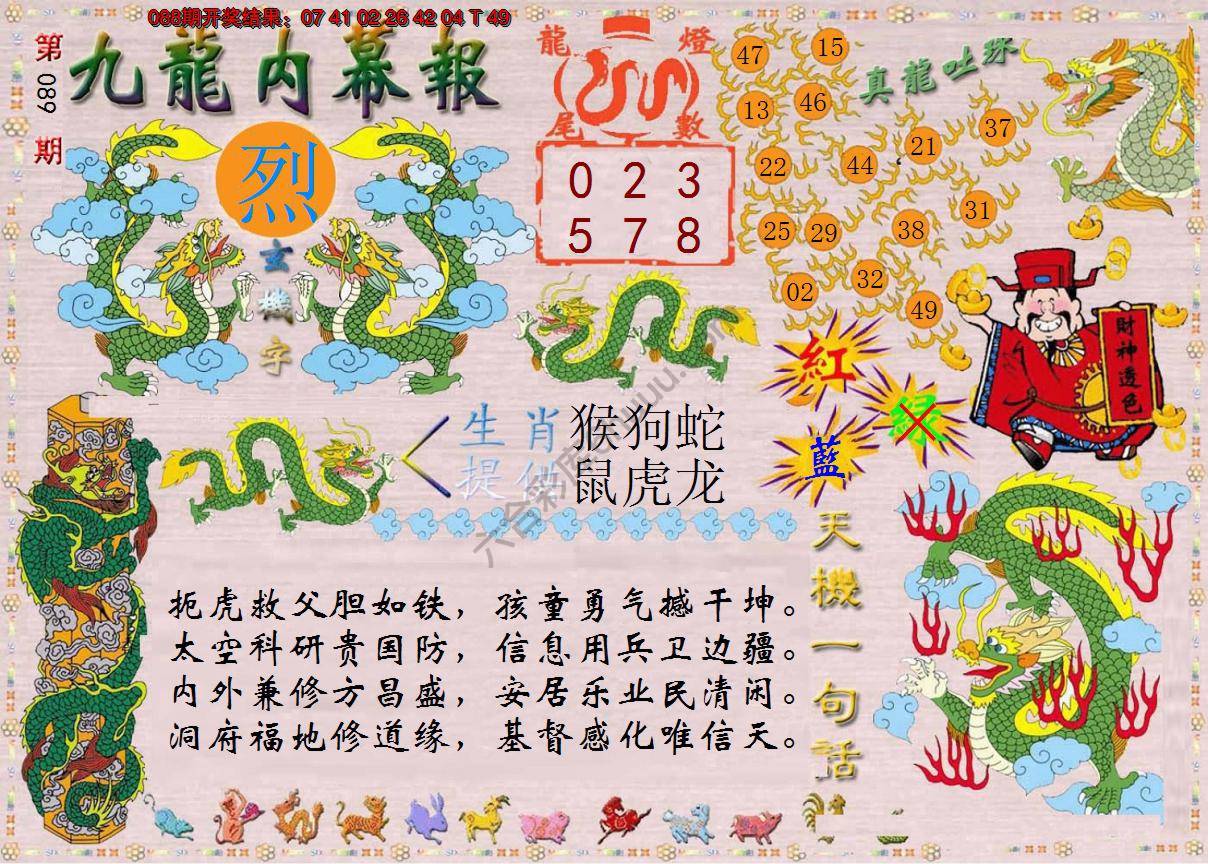 088期开奖结果：07 41 02 26 42 04 T 49
第089期
九龍内幕報
烈
玄機字
龍燈
尾數
0 2 3
5 7 8
真龍吐珠
47 15
13 46
22 44 21 37
25 29 38 31
02 32 49
財神透色
紅
綠
藍
生肖 猴狗蛇
提供 鼠虎龙
天機一句話
扼虎救父胆如铁，孩童勇气撼干坤。
太空科研贵国防，信息用兵卫边疆。
内外兼修方昌盛，安居乐业民清闲。
洞府福地修道缘，基督感化唯信天。